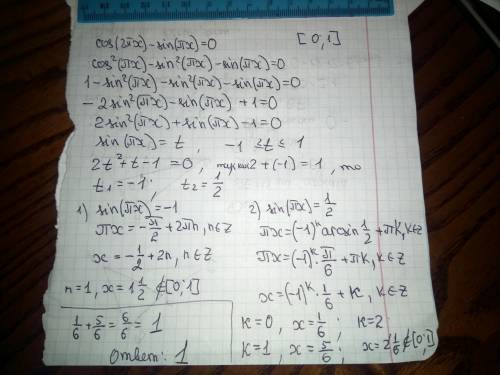 cos(2πx)-sin(πx)=0 [0;1]
cos²(πx)-sin²(πx)-sin(πx)=0
1-sin²(πx)-sin²(πx)-sin(πx)=0
-2sin²(πx)-sin(πx)+1=0
2sin²(πx)+sin(πx)-1=0
sin(πx)=t, -1≤t≤1
2t²+t-1=0, 2+(-1)=1, то
t₁=-1; t₂=1/2
1) sin(πx)=-1
πx=-π/2+2πn, n∈Z
x=-1/2+2n, n∈Z
n=1, x=1 1/2 ∉[0;1]
1/6+5/6=6/6=1
Ответ: 1
2) sin(πx)=1/2
πx=(-1)ᵏ arcsin 1/2+πk, k∈Z
πx=(-1)ᵏ·π/6+πk, k∈Z
x=(-1)ᵏ·1/6+k, k∈Z
k=0, x=1/6; k=2
k=1, x=5/6; x=2 1/6∉[0;1]